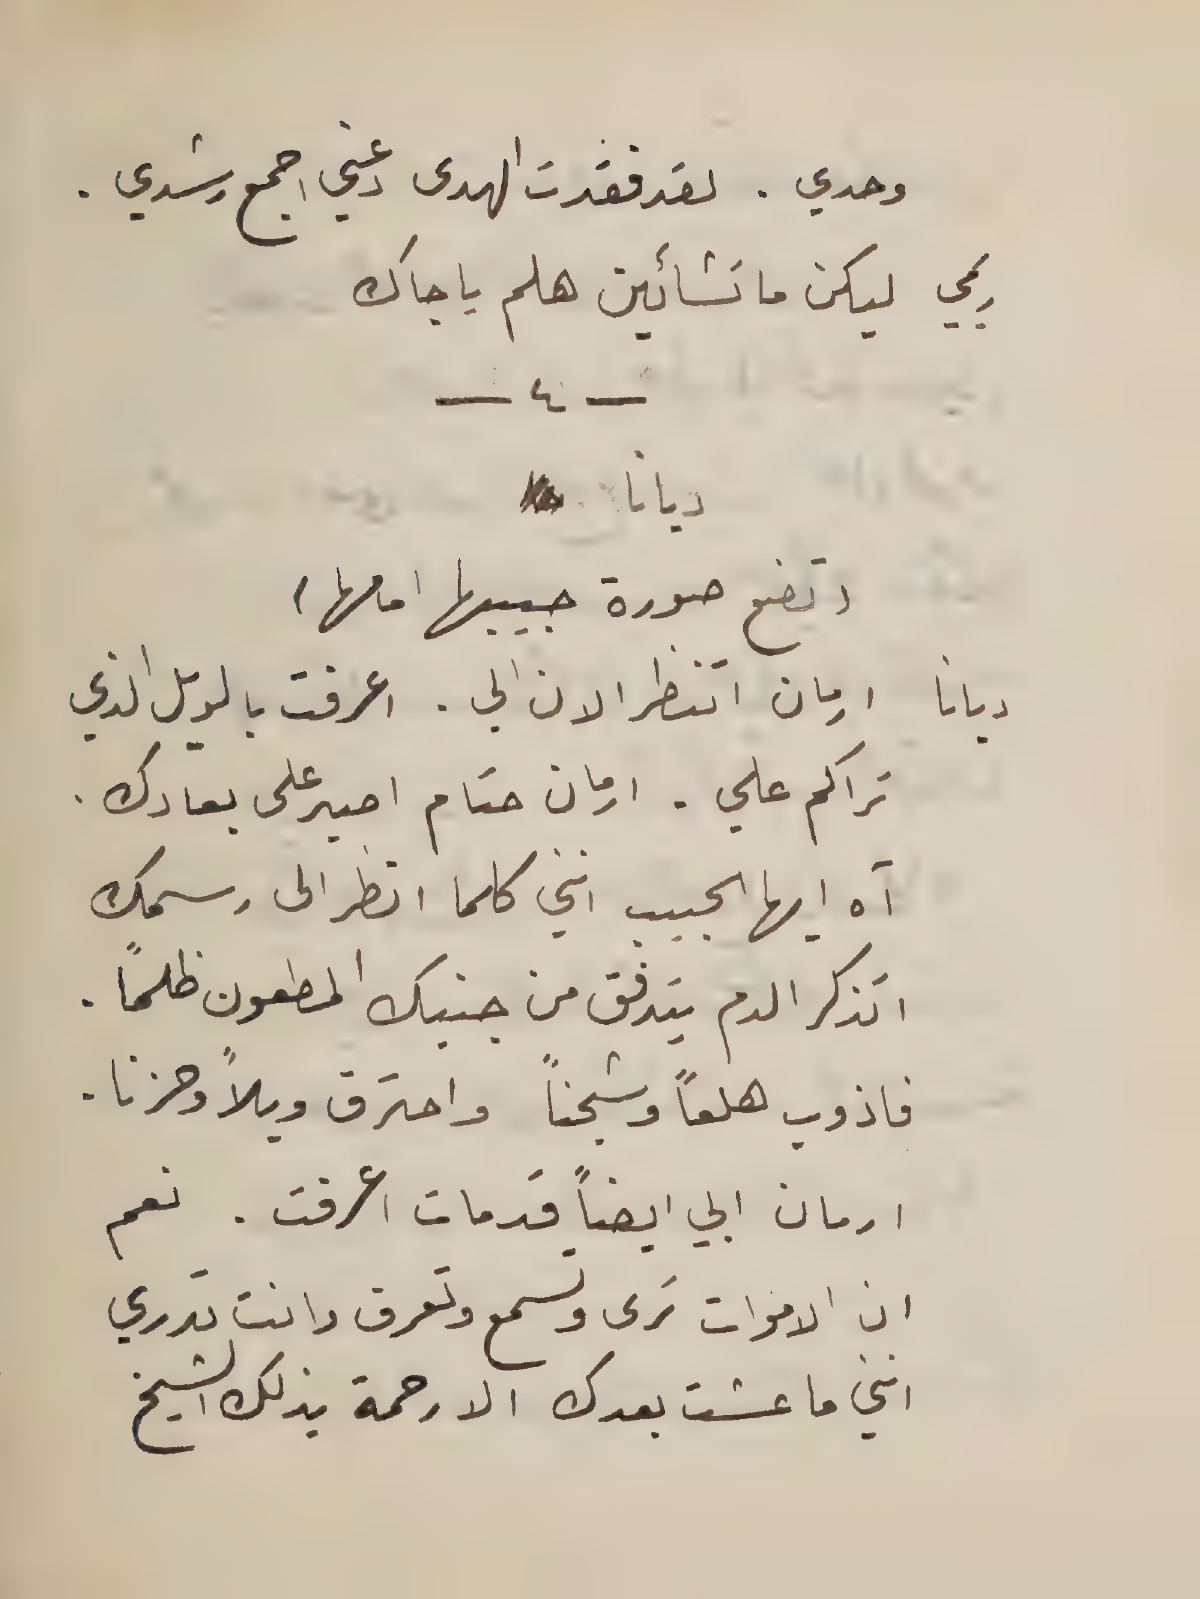 وحدي . لقد فقدت الهدى دعني اجمع رشدي .
رمي ليكن ما تشائين هلم يا جاك
— ٤ —
ديانا
( تضع صورة حبيبها امامها )
ديانا ارمان اتنظر الان الي . اعرفت بالويل الذي
تراكم علي . ارمان حتام اصبر على بعادك .
آه ايها الحبيب انني كلما انظر الى رسمك
اتذكر الدم يتدفق من جنبيك المطعون ظلماً .
فاذوب هلعاً وشجناً واحترق ويلاً وحزنا .
ارمان ابي ايضاً قد مات اعرفت . نعم
ان الاموات ترى وتسمع وتعرف وانت تدري
انني ما عشت بعدك الا رحمة بذلك الشيخ